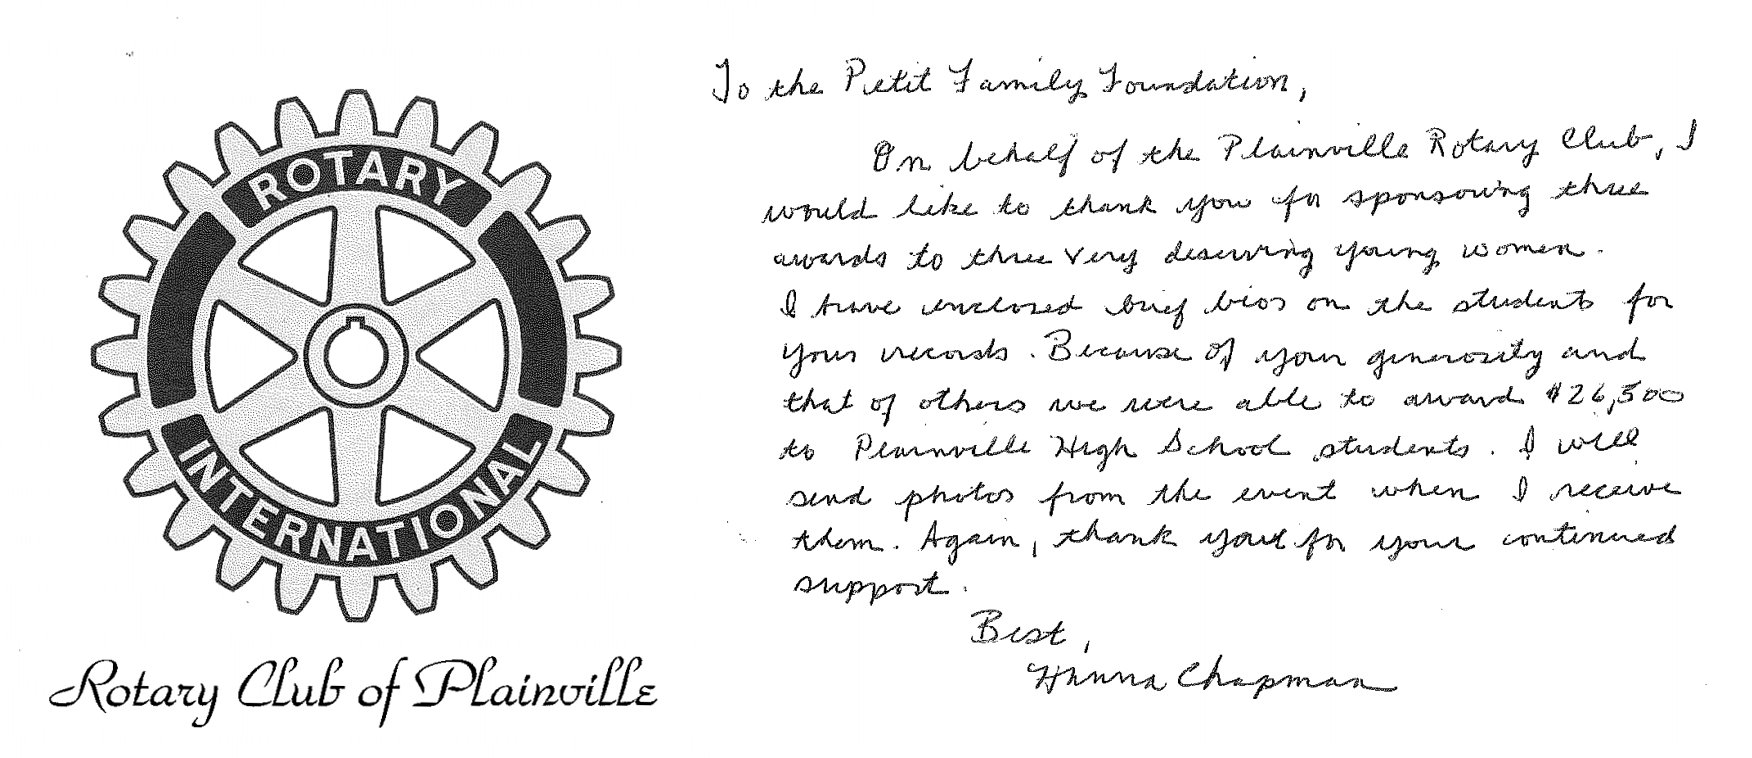 ROTARY
INTERNATIONAL
Rotary Club of Plainville
To the Petit Family Foundation,
On behalf of the Plainville Rotary Club, I
would like to thank you for sponsoring three
awards to three very deserving young women.
I have enclosed brief bios on the students for
your records. Because of your generosity and
that of others we were able to award $26,500
to Plainville High School students. I will
send photos from the event when I receive
them. Again, thank you for your continued
support.
Best,
Hanna Chapman